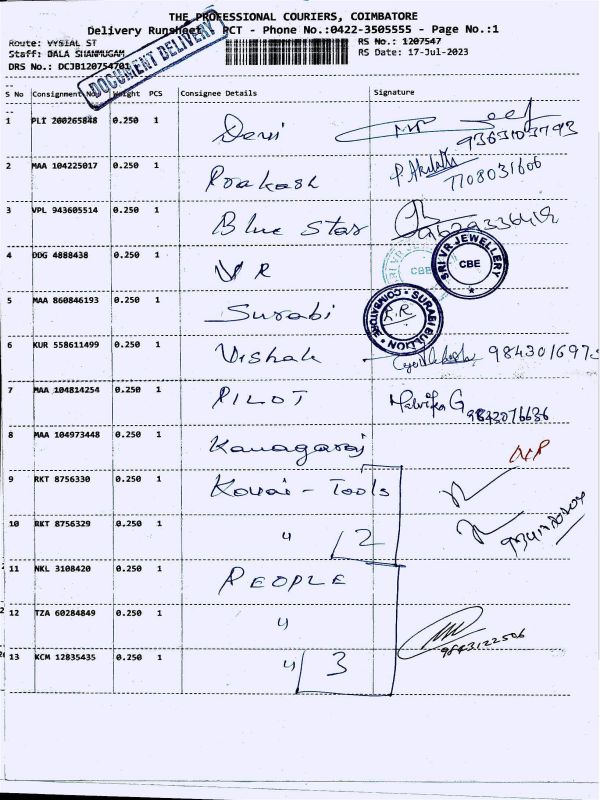 THE PROFESSIONAL COURIERS, COIMBATORE
Delivery Runsheet PCT - Phone No.:0422-3505555 - Page No.:1
Route: VYSIAL ST
RS No.: 1207547
Staff: BALA SHANMUGAM
RS Date: 17-Jul-2023
DRS No.: DCJB120754701
DOCUMENT DELIVERY
S No Consignment No. Weight PCS Consignee Details Signature
1 PLI 200265848 0.250 1 Devi 9363103793
2 MAA 104225017 0.250 1 Prakash P. Akilathi 7708031606
3 VPL 943605514 0.250 1 Blue Star
4 DDG 4888438 0.250 1 VR
SRI VR JEWELLERY CBE
5 MAA 860846193 0.250 1 Surabi
SURABI BULLION COIMBATORE
6 KUR 558611499 0.250 1 Vishal
7 MAA 104814254 0.250 1 PILOT G 9843076636
8 MAA 104973448 0.250 1 Kanagaraj NP
9 RKT 8756330 0.250 1 Kovai - Tools
10 RKT 8756329 0.250 1 " 2
11 NKL 3108420 0.250 1 PEOPLE
12 TZA 60284849 0.250 1 "
13 KCM 12835435 0.250 1 " 3 9843122506